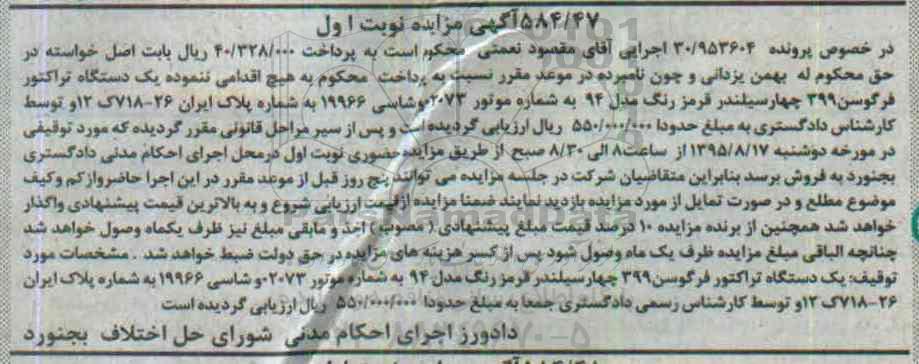 ۵۸۴/۴۷آگهی مزایده نوبت ا ول
در خصوص پرونده ۳۰/۹۵۳۶۰۴ اجرایی آقای مقصود نعمتی محکوم است به پرداخت ۴۰/۳۲۸/۰۰۰ ریال بابت اصل خواسته در
حق محکوم له بهمن یزدانی و چون نامبرده در موعد مقرر نسبت به پرداخت محکوم به هیچ اقدامی ننموده یک دستگاه تراکتور
فرگوسن۳۹۹ چهارسیلندر قرمز رنگ مدل ۹۴ به شماره موتور ۲۰۷۳وشاسی ۱۹۹۶۶ به شماره پلاک ایران ۲۶-۷۱۸ک ۱۲و توسط
کارشناس دادگستری به مبلغ حدودا ۵۵۰/۰۰۰/۰۰۰ ریال ارزیابی گردیده است و پس از سیر مراحل قانونی مقرر گردیده که مورد توقیفی
در مورخه دوشنبه ۱۳۹۵/۸/۱۷ از ساعت۸ الی ۸/۳۰ صبح از طریق مزایده حضوری نوبت اول درمحل اجرای احکام مدنی دادگستری
بجنورد به فروش برسد بنابراین متقاضیان شرکت در جلسه مزایده می توانند پنج روز قبل از موعد مقرر در این اجرا حاضرواز کم وکیف
موضوع مطلع و در صورت تمایل از مورد مزایده بازدید نمایند ضمنا مزایده ازقیمت ارزیابی شروع و به بالاترین قیمت پیشنهادی واگذار
خواهد شد همچنین از برنده مزایده ۱۰ درصد قیمت مبلغ پیشنهادی ( مصوب ) اخذ و مابقی مبلغ نیز ظرف یکماه وصول خواهد شد
چنانچه الباقی مبلغ مزایده ظرف یک ماه وصول نشود پس از کسر هزینه های مزایده در حق دولت ضبط خواهد شد . مشخصات مورد
توقیف: یک دستگاه تراکتور فرگوسن۳۹۹ چهارسیلندر قرمز رنگ مدل ۹۴ به شماره موتور ۲۰۷۳و شاسی ۱۹۹۶۶ به شماره پلاک ایران
۲۶-۷۱۸ک ۱۲و توسط کارشناس رسمی دادگستری جمعا به مبلغ حدودا ۵۵۰/۰۰۰/۰۰۰ ریال ارزیابی گردیده است
دادورز اجرای احکام مدنی شورای حل اختلاف بجنورد